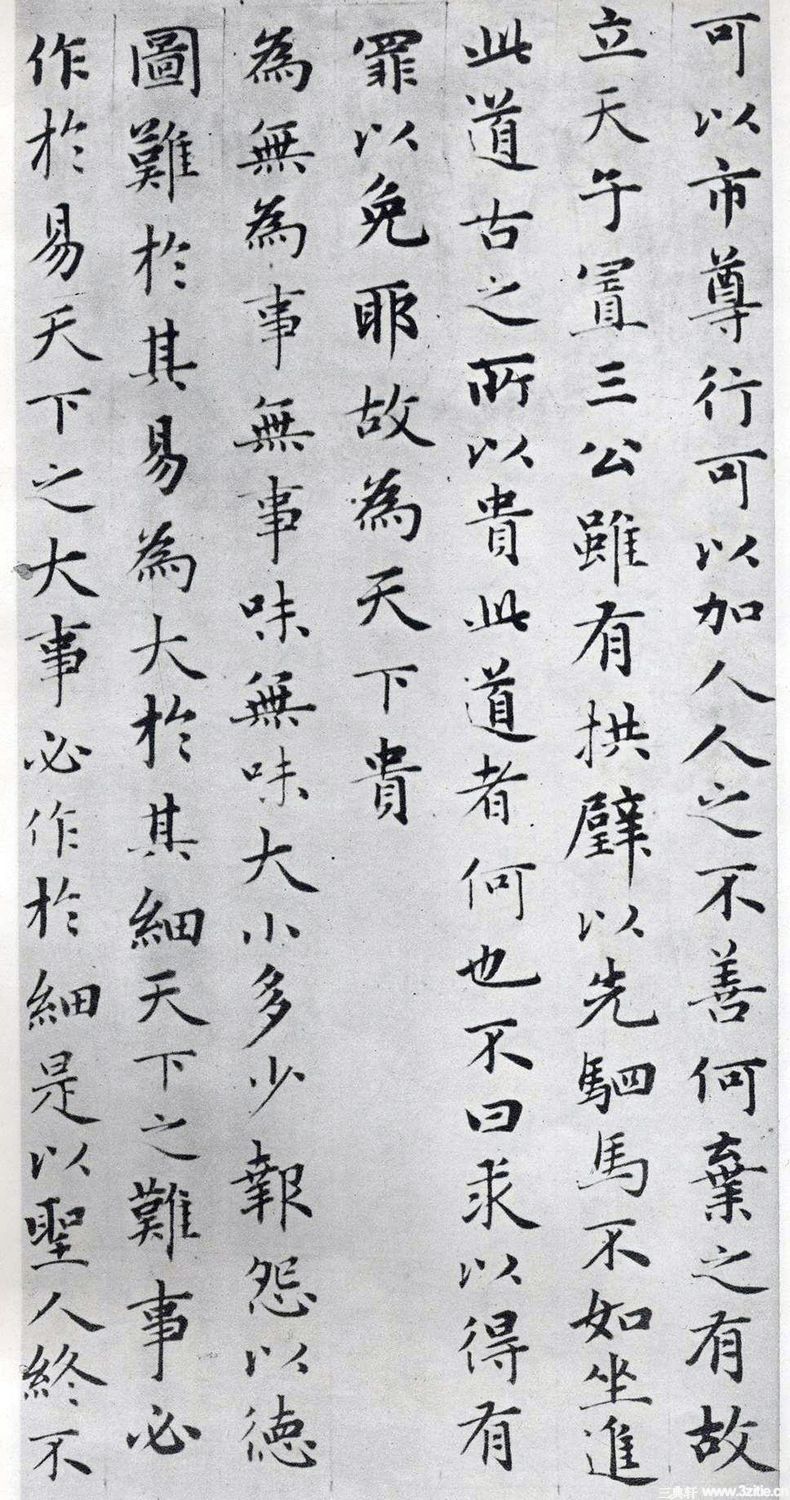 可以市尊行可以加人人之不善何棄之有故
立天子置三公雖有拱璧以先駟馬不如坐進
此道古之所以貴此道者何也不曰求以得有
罪以免耶故為天下貴
為無為事無事味無味大小多少報怨以徳
圖難於其易為大於其細天下之難事必
作於易天下之大事必作於細是以聖人終不
三典軒 www.3zitie.cn